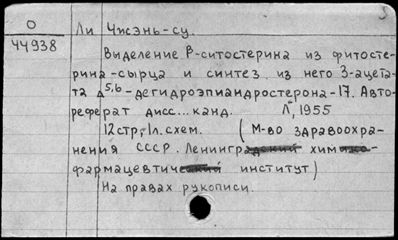 О
44938
Ли Чжэнь-су.
Выделение β-ситостерина из фитосте-
рина-сырца и синтез из него 3-ацета-
та Δ5,6-дегидроэпиандростерона-17. Авто-
реферат дисс... канд. Л., 1955
12стр, 1л. схем. (М-во здравоохра-
нения СССР. Ленинградский химико-
фармацевтический институт)
На правах рукописи.